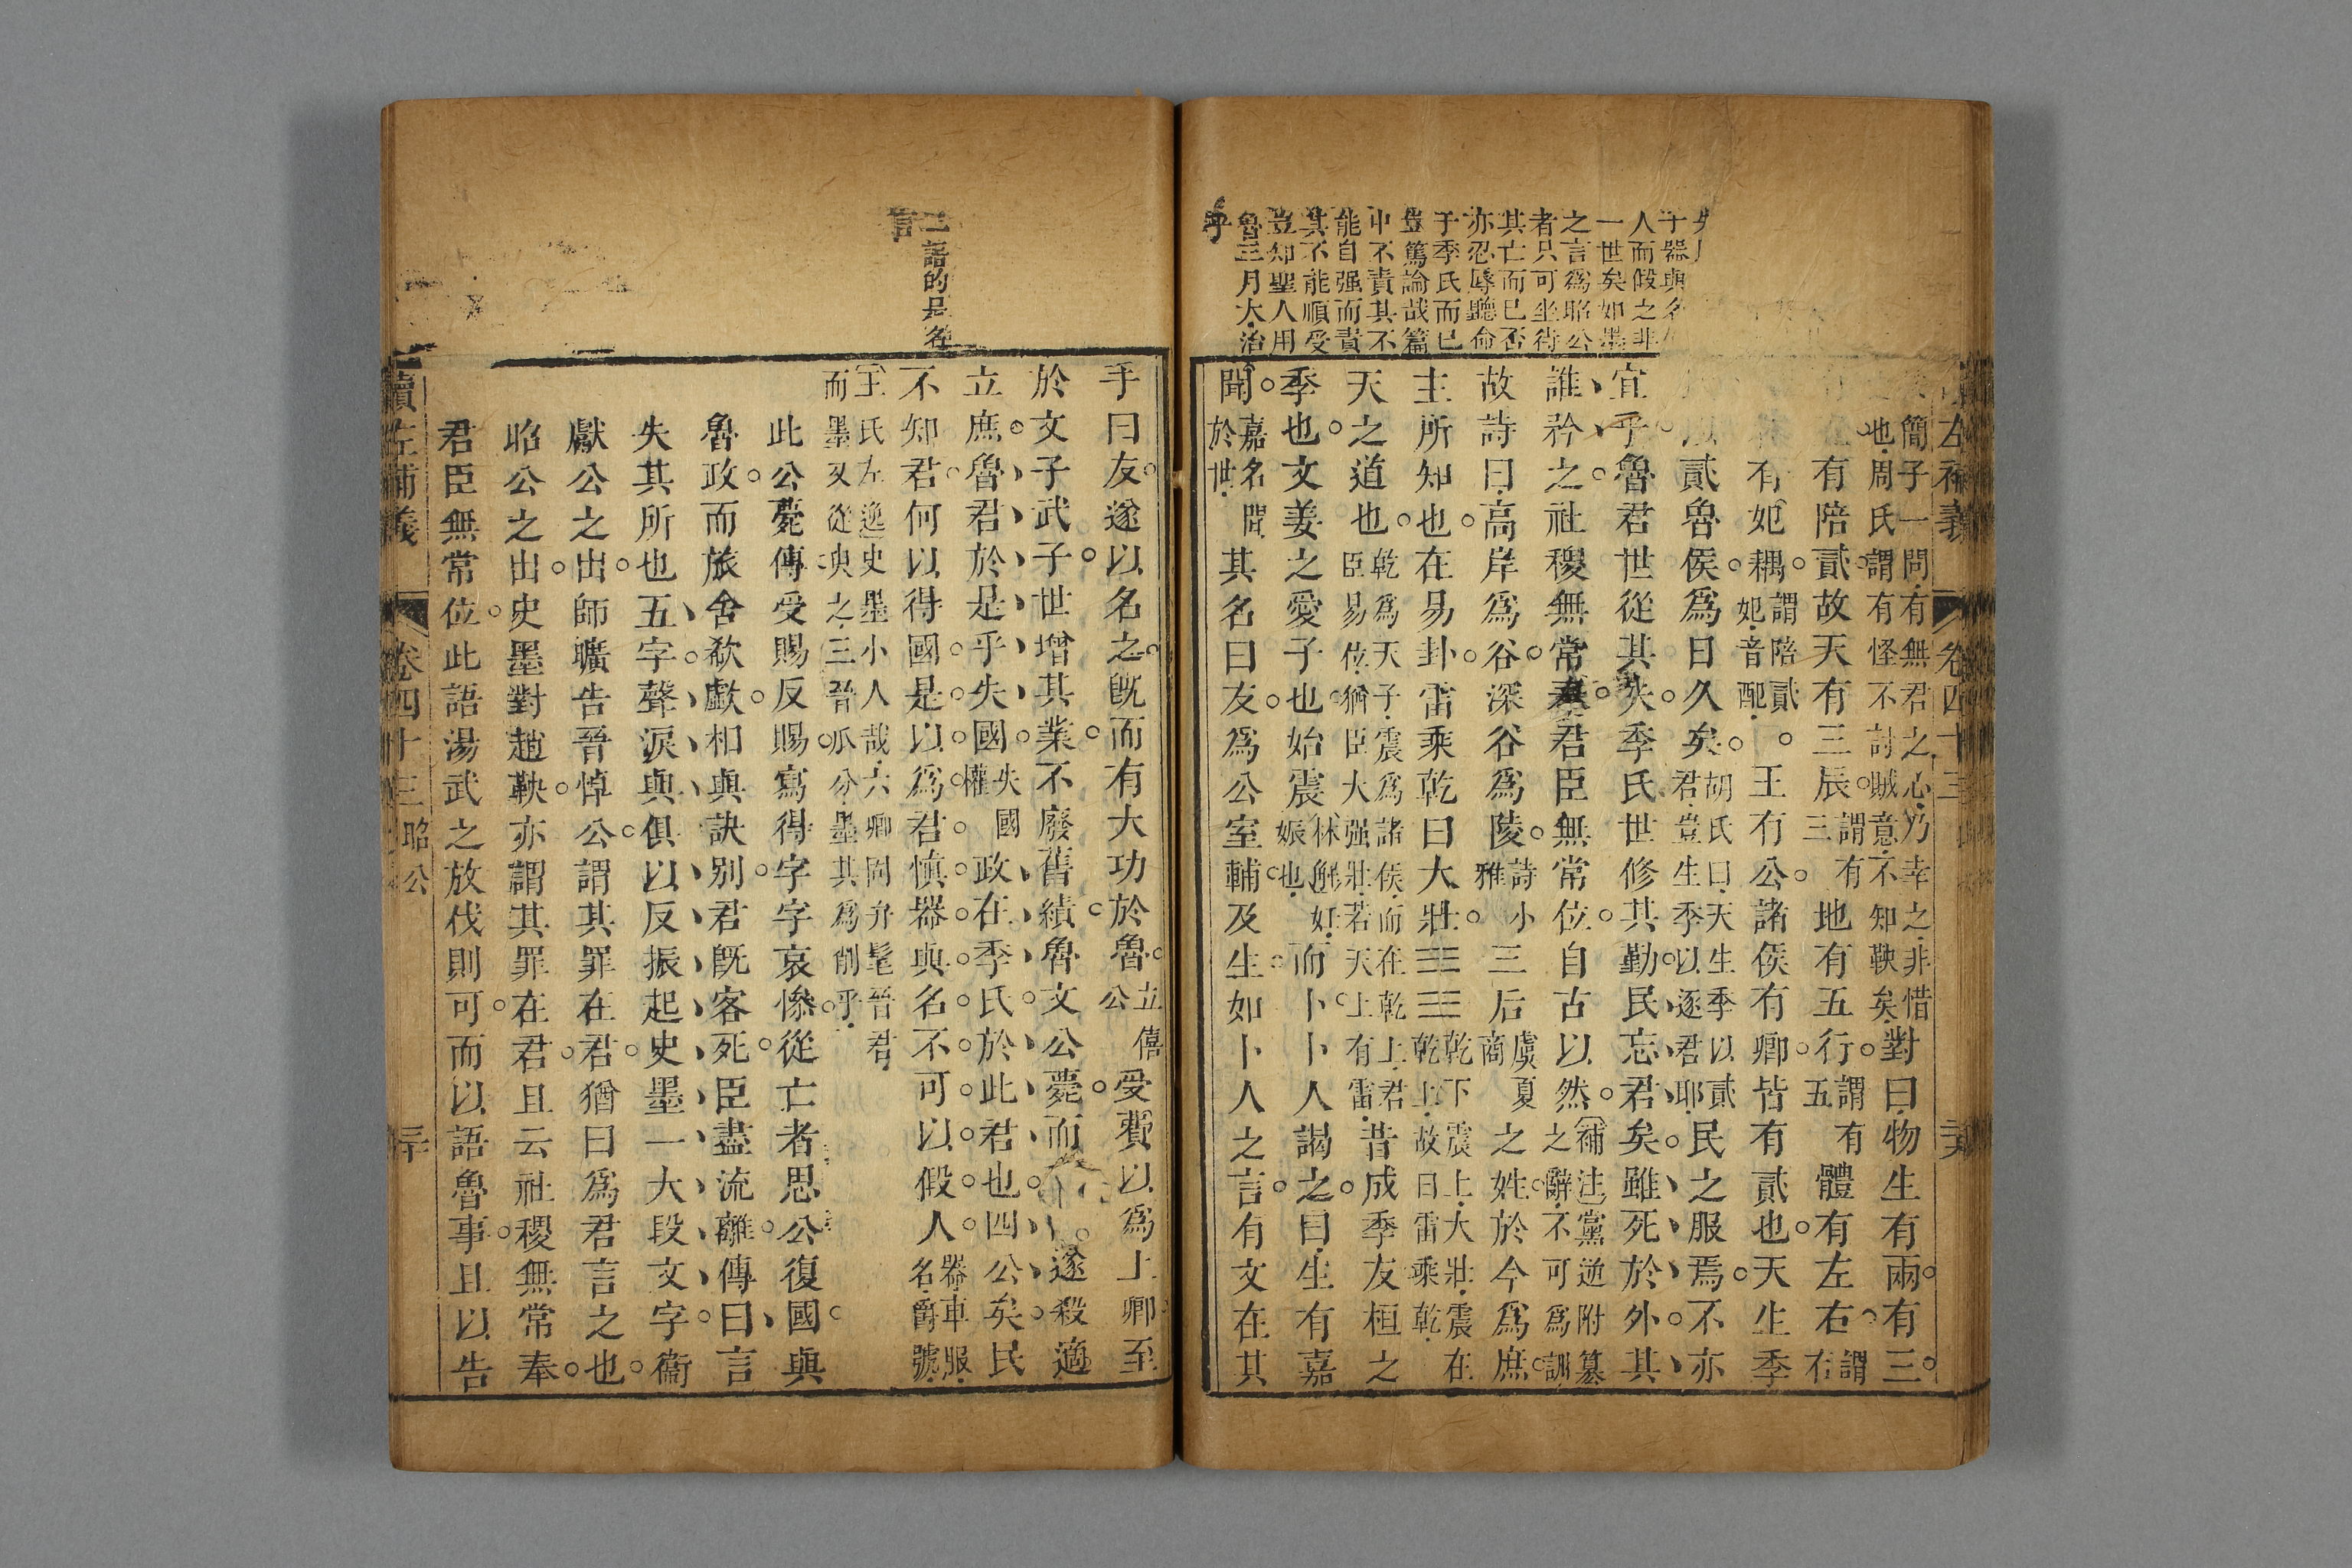 于器與名
人而假之非
一世矣如墨
之言爲昭公
者只可坐待
其亡而已否
亦忍辱聽命
于季氏而已
豈篤論哉篇
中不責其不
能自强而責
其不能順受
豈知聖人用
魯三月大治
乎
左補義 卷四十三
簡子一問有無君之心乃幸之非惜
也周氏謂有怪不討賊意不知鞅矣對曰物生有兩有三
有陪貳故天有三辰謂有三地有五行謂有五體有左右謂右
有妃耦謂陪貳妃音配王有公諸侯有卿皆有貳也天生季
貳魯侯爲日久矣胡氏曰天生季以貳君豈生季以逐君耶民之服焉不亦
宜乎魯君世從其失季氏世修其勤民忘君矣雖死於外其
誰矜之社稷無常奉君臣無常位自古以然補注黨逆附篡之辭不可爲訓
故詩曰高岸爲谷深谷爲陵詩小雅三后虞夏商之姓於今爲庶
主所知也在易卦雷乘乾曰大壯䷡乾下震上大壯震在乾上故曰雷乘乾
天之道也乾爲天子震爲諸侯而在乾上君臣易位猶臣大强壯若天上有雷昔成季友桓之
季也文姜之愛子也始震林解妊娠也而卜卜人謁之曰生有嘉
聞嘉名聞於世其名曰友爲公室輔及生如卜人之言有文在其
二語的是名
言
手曰友遂以名之旣而有大功於魯立僖公受費以爲上卿至
於文子武子世增其業不廢舊績魯文公薨而遂殺適
立庶魯君於是乎失國失國權政在季氏於此君也四公矣民
不知君何以得國是以爲君慎器與名不可以假人器車服名爵號
王氏左逸史墨小人哉六卿固弁髦晉君
而墨又從臾之三晉瓜分墨其爲削乎
此公薨傳受賜反賜寫得字字哀慘從亡者思公復國與
魯政而旅舍欷歔相與訣别君旣客死臣盡流離傳曰言
失其所也五字聲淚與俱以反振起史墨一大段文字衞
獻公之出師曠告晉悼公謂其罪在君猶曰爲君言之也
昭公之出史墨對趙鞅亦謂其罪在君且云社稷無常奉
君臣無常位此語湯武之放伐則可而以語魯事且以告
讀左補義 卷四十三 昭公 三十